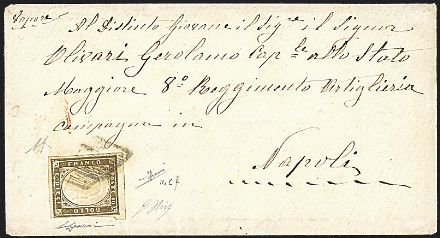 Vapore
Al Distinto Giovane il Sigre il Signor
Olivari Gerolamo Caple allo Stato
Maggiore 8º Reggimento Artiglieria
campagna in
Napoli
FRANCO
BOLLO